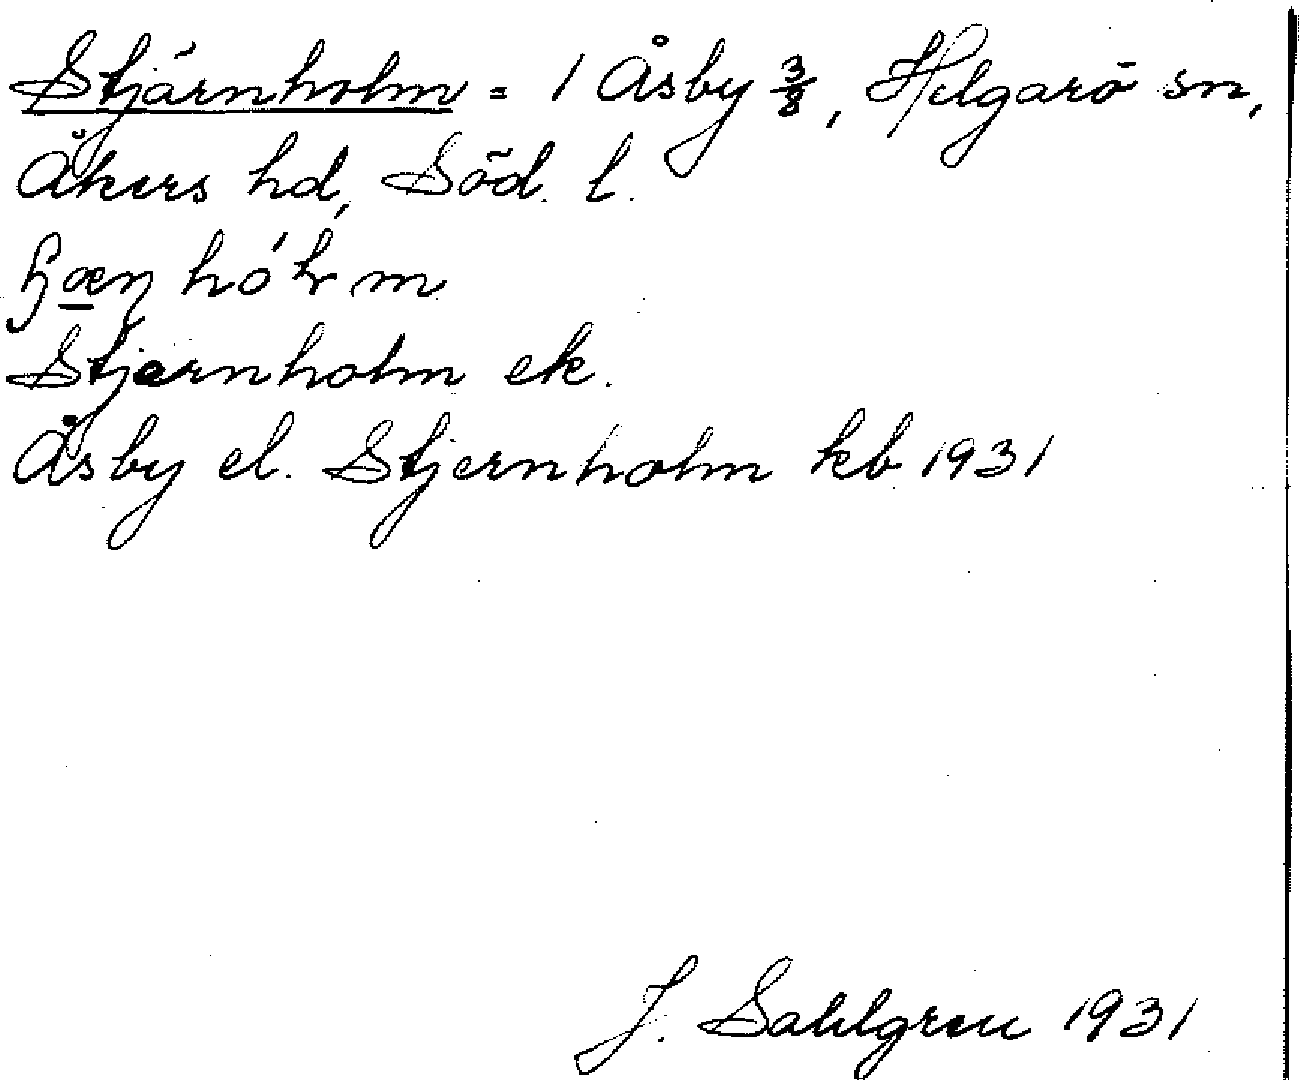 Stjärnholm = 1 Åsby 3/8, Helgarö sn,
Åkers hd, Söd. l.
Stjernholm ek.
Åsby el. Stjernholm kb 1931
J. Sahlgren 1931